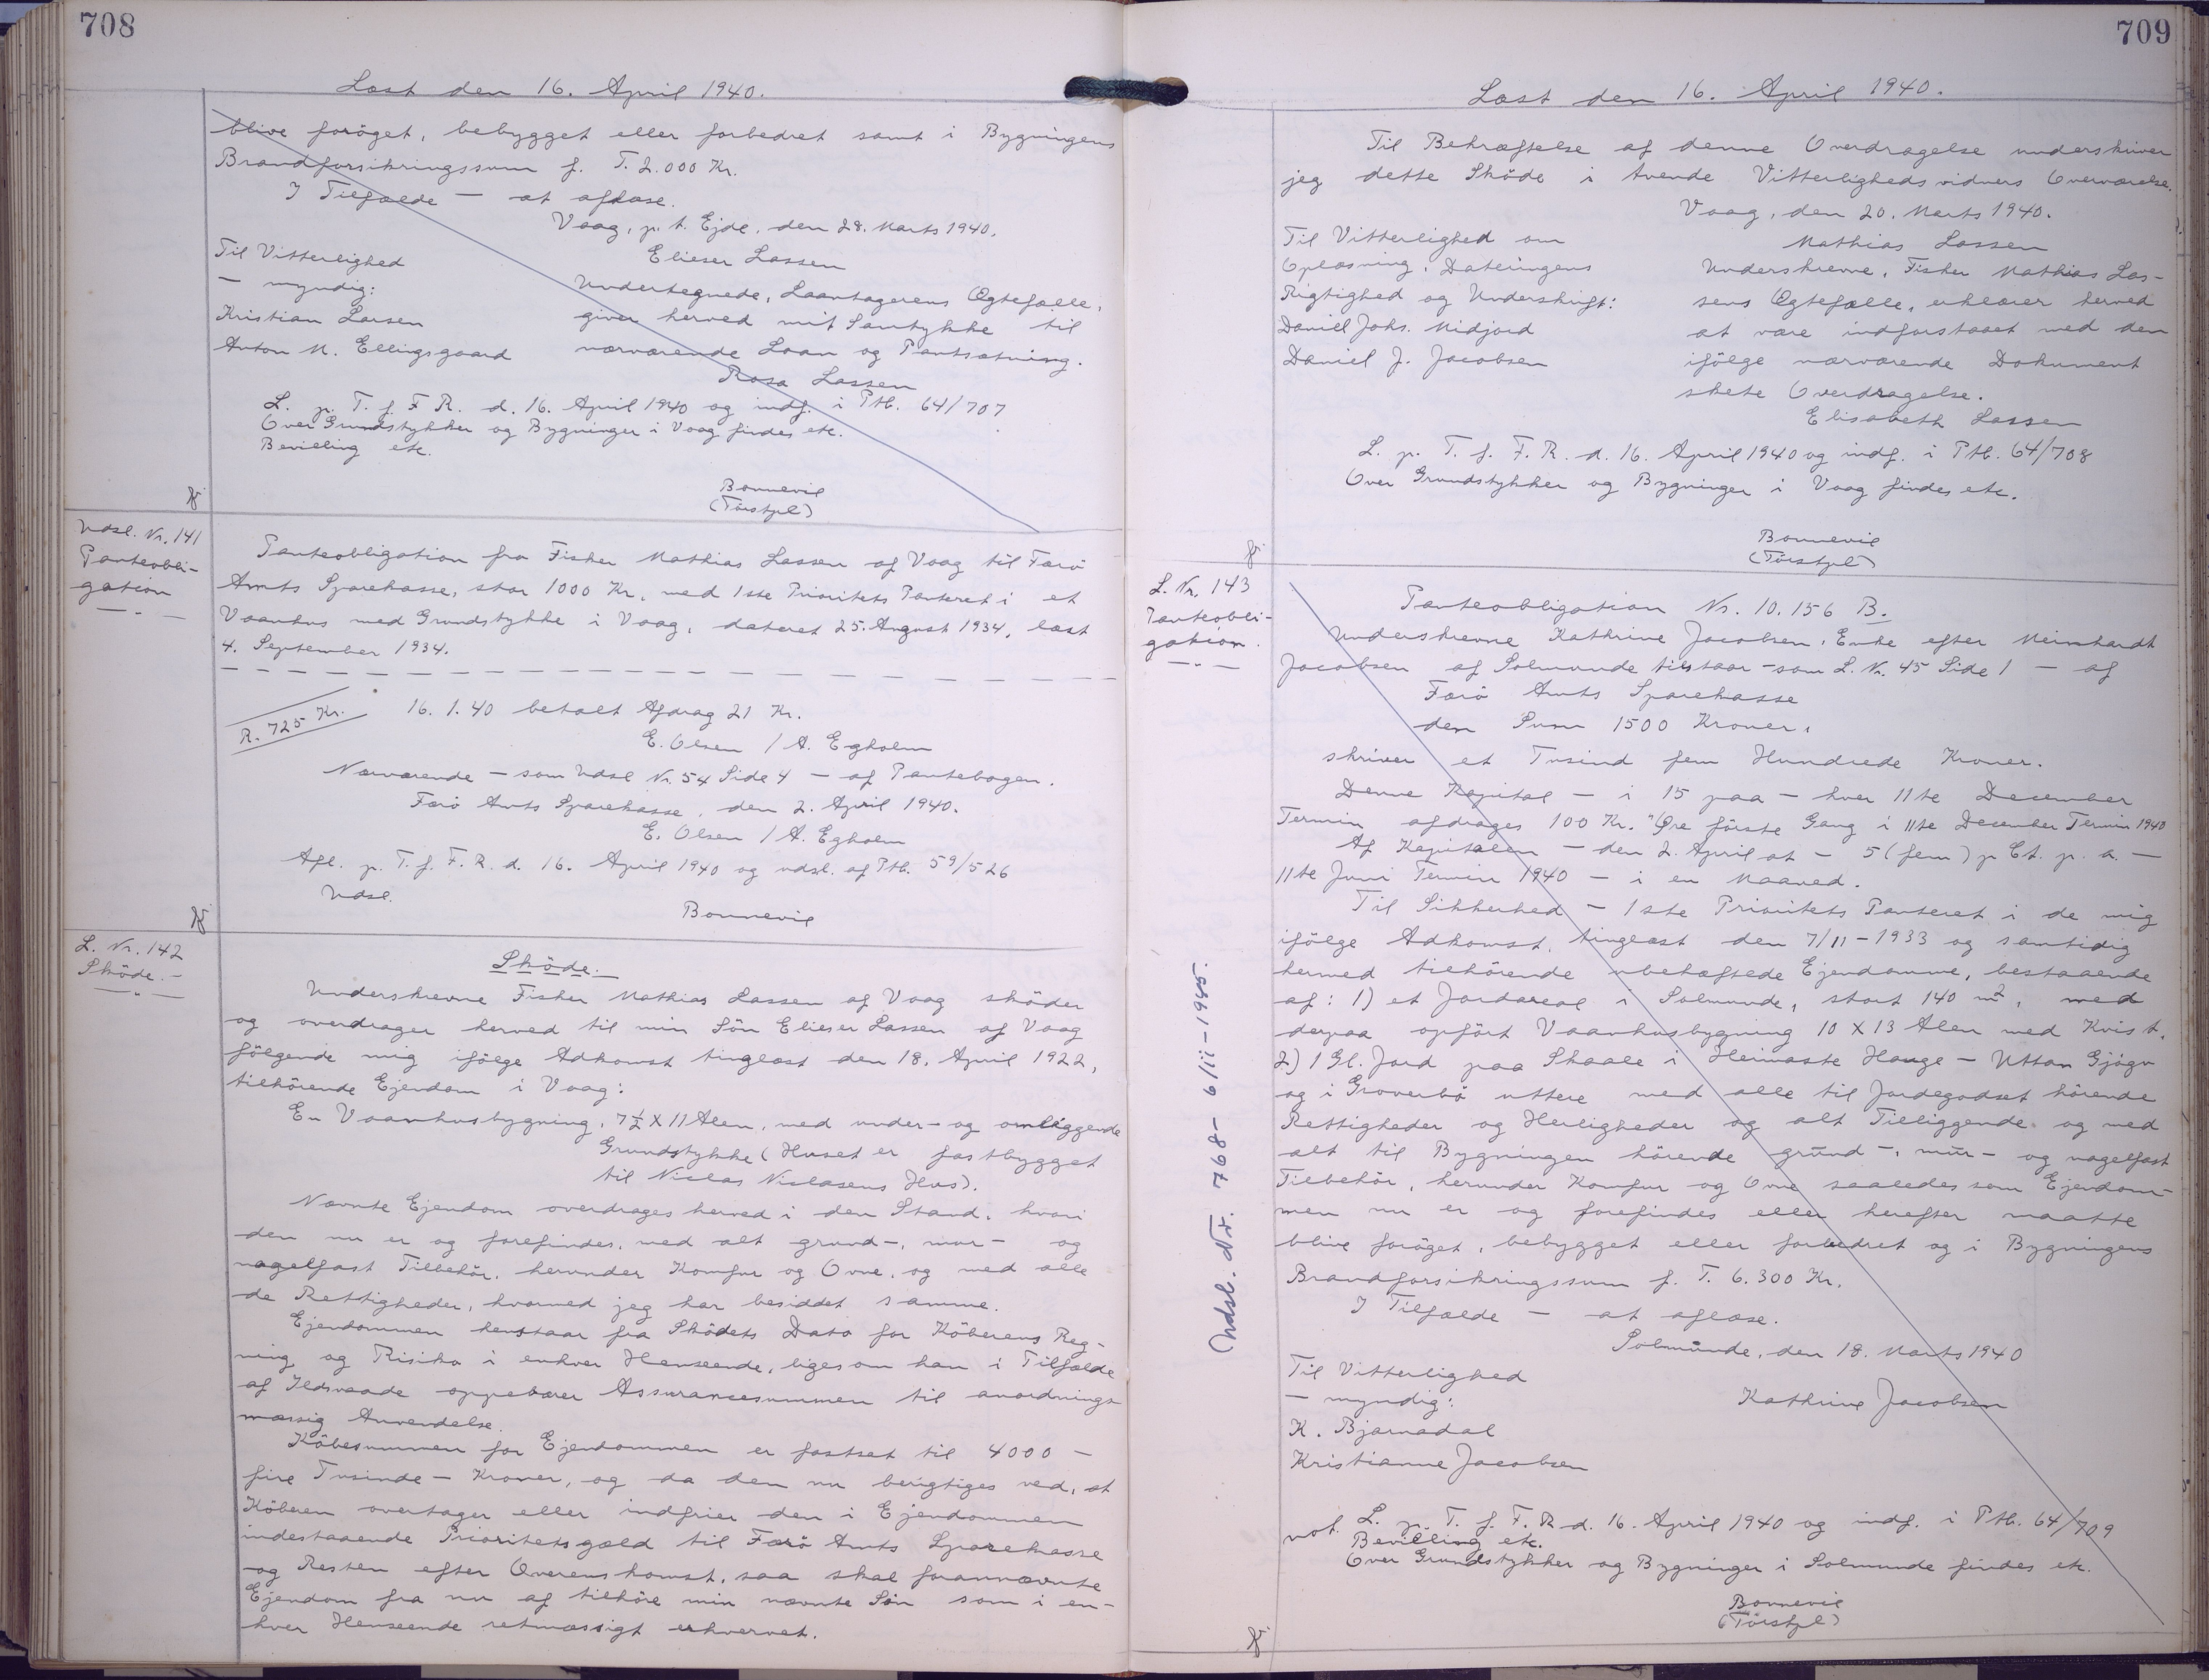 708
Læst den 16. April 1940.
blive forøget, bebygget eller forbedret samt i Bygningens
Brandforsikringssum f. T. 2.000 Kr.
I Tilfælde — at aflæse.
Vaag, p. t. Ejde, den 28. Marts 1940.
Til Vitterlighed
— myndig:
Kristian Larsen
Anton M. Ellingsgaard
Elieser Lassen
Undertegnede, Laantagerens Ægtefælle,
giver herved mit Samtykke til
nærværende Laan og Pantsætning.
Rosa Lassen
L. p. T. f. F. R. d. 16. April 1940 og indf. i Ptb. 64/707
Over Grundstykker og Bygninger i Vaag findes etc.
Bevilling etc.
Bonnevie
(Törstpl)
Udsl. Nr. 141
Panteobli-
gation
Panteobligation fra Fisker Mathias Lassen af Vaag til Færö
Amts Sparekasse, stor 1000 Kr, med 1ste Prioritets Panteret i et
Vaanhus med Grundstykke i Vaag, dateret 25. August 1934, læst
4. September 1934.
R. 725 Kr.
16. 1. 40 betalt Afdrag 21 Kr.
E. Olsen / A. Egholm
Nærværende — som Udsl Nr. 54 Side 4 — af Pantebogen.
Færö Amts Sparekasse, den 2. April 1940.
E. Olsen / A. Egholm
Afl. p. T. f. F. R. d. 16. April 1940 og udsl. af Ptb. 59/526
Udsl.
Bonnevie
L. Nr. 142
Sköde.
Sköde.
Underskrevne Fisker Mathias Lassen af Vaag sköder
og overdrager herved til min Sön Elieser Lassen af Vaag
fölgende mig ifölge Adkomst tinglæst den 18. April 1922,
tilhörende Ejendom i Vaag:
En Vaanhusbygning, 7½ X 11 Alen, med under- og omliggende
Grundstykke (Huset er fastbygget
til Niclas Niclasens Hus).
Nævnte Ejendom overdrages herved i den Stand, hvori
den nu er og forefindes, med alt grund-, mur- og
nagelfast Tilbehör, herunder Komfur og Ovne, og med alle
de Rettigheder, hvormed jeg har besiddet samme.
Ejendommen henstaar fra Sködets Dato for Köberens Reg-
ning og Risiko i enhver Henseende, ligesom han i Tilfælde
af Ildsvaade oppebærer Assurancesummen til anordnings-
mæssig Anvendelse.
Köbesummen for Ejendommen er fastsat til 4000 —
fire Tusinde — Kroner, og da den nu berigtiges ved, at
Köberen overtager eller indfrier den i Ejendommen
indestaaende Prioritetsgæld til Færö Amts Sparekasse
og Resten efter Overenskomst, saa skal forannævnte
Ejendom fra nu af tilhöre min nævnte Sön som i en-
hver Henseende retmæssigt erhvervet.
709
Læst den 16. April 1940.
Til Bekræftelse af denne Overdragelse underskriver
jeg dette Sköde i tvende Vitterlighedsvidners Overværelse.
Vaag, den 20. Marts 1940.
Til Vitterlighed om
Oplæsning, Dateringens
Rigtighed og Underskrift:
Daniel Johs. Midjord
Daniel J. Jacobsen
Mathias Lassen
Underskrevne, Fisker Mathias Las-
sens Ægtefælle, erklærer herved
at være indforstaaet med den
ifölge nærværende Dokument
skete Overdragelse.
Elisabeth Lassen
L. p. T. f. F. R. d. 16. April 1940 og indf. i Ptb. 64/708
Over Grundstykker og Bygninger i Vaag findes etc.
Bonnevie
(Törstpl)
L. Nr. 143
Panteobli-
gation.
Panteobligation Nr. 10.156 B.
Underskrevne Kathrine Jacobsen, Enke efter Meinhardt
Jacobsen af Solmunde tilstaar — som L. Nr. 45 Side 1 — af
Færö Amts Sparekasse
den Sum 1500 Kroner,
skriver et Tusind fem Hundrede Kroner.
Denne Kapital — i 15 paa — hver 11te December
Termin afdrages 100 Kr. " Øre förste Gang i 11te December Termin 1940
Af Kapitalen — den 2. April at — 5 (fem) p Ct. p. a. —
11te Juni Termin 1940 — i en Maaned.
Til Sikkerhed — 1ste Prioritets Panteret i de mig
ifölge Adkomst, tinglæst den 7/11 - 1933 og samtidig
hermed tilhörende ubehæftede Ejendomme, bestaaende
af: 1) et Jordareal i Solmunde, stort 140 m², med
derpaa opfört Vaanhusbygning 10 X 13 Alen med Kvist.
2) 1 Gl. Jord paa Skaale i Heimaste Hauge — Uttan Gjógv
og i Groverbö uttere med alle til Jordegodset hörende
Rettigheder og Herligheder og alt Tilliggende og med
alt til Bygningen hörende grund-, mur- og nagelfast
Tilbehör, herunder Komfur og Ovne saaledes som Ejendom-
men nu er og forefindes eller herefter maatte
blive foröget, bebygget eller forbedret og i Bygningens
Brandforsikringssum f. T. 6.300 Kr.
I Tilfælde — at aflæse.
Solmunde, den 18. Marts 1940
Til Vitterlighed
— myndig:
K. Bjarnadal
Kristianne Jacobsen
Kathrine Jacobsen
not. L. p. T. f. F. R. d. 16. April 1940 og indf. i Ptb. 64/709
Bevilling etc.
Over Grundstykker og Bygninger i Solmunde findes etc.
Bonnevie
(Törstpl)
Udsl. Nr. 768 - 6/11 - 1945.